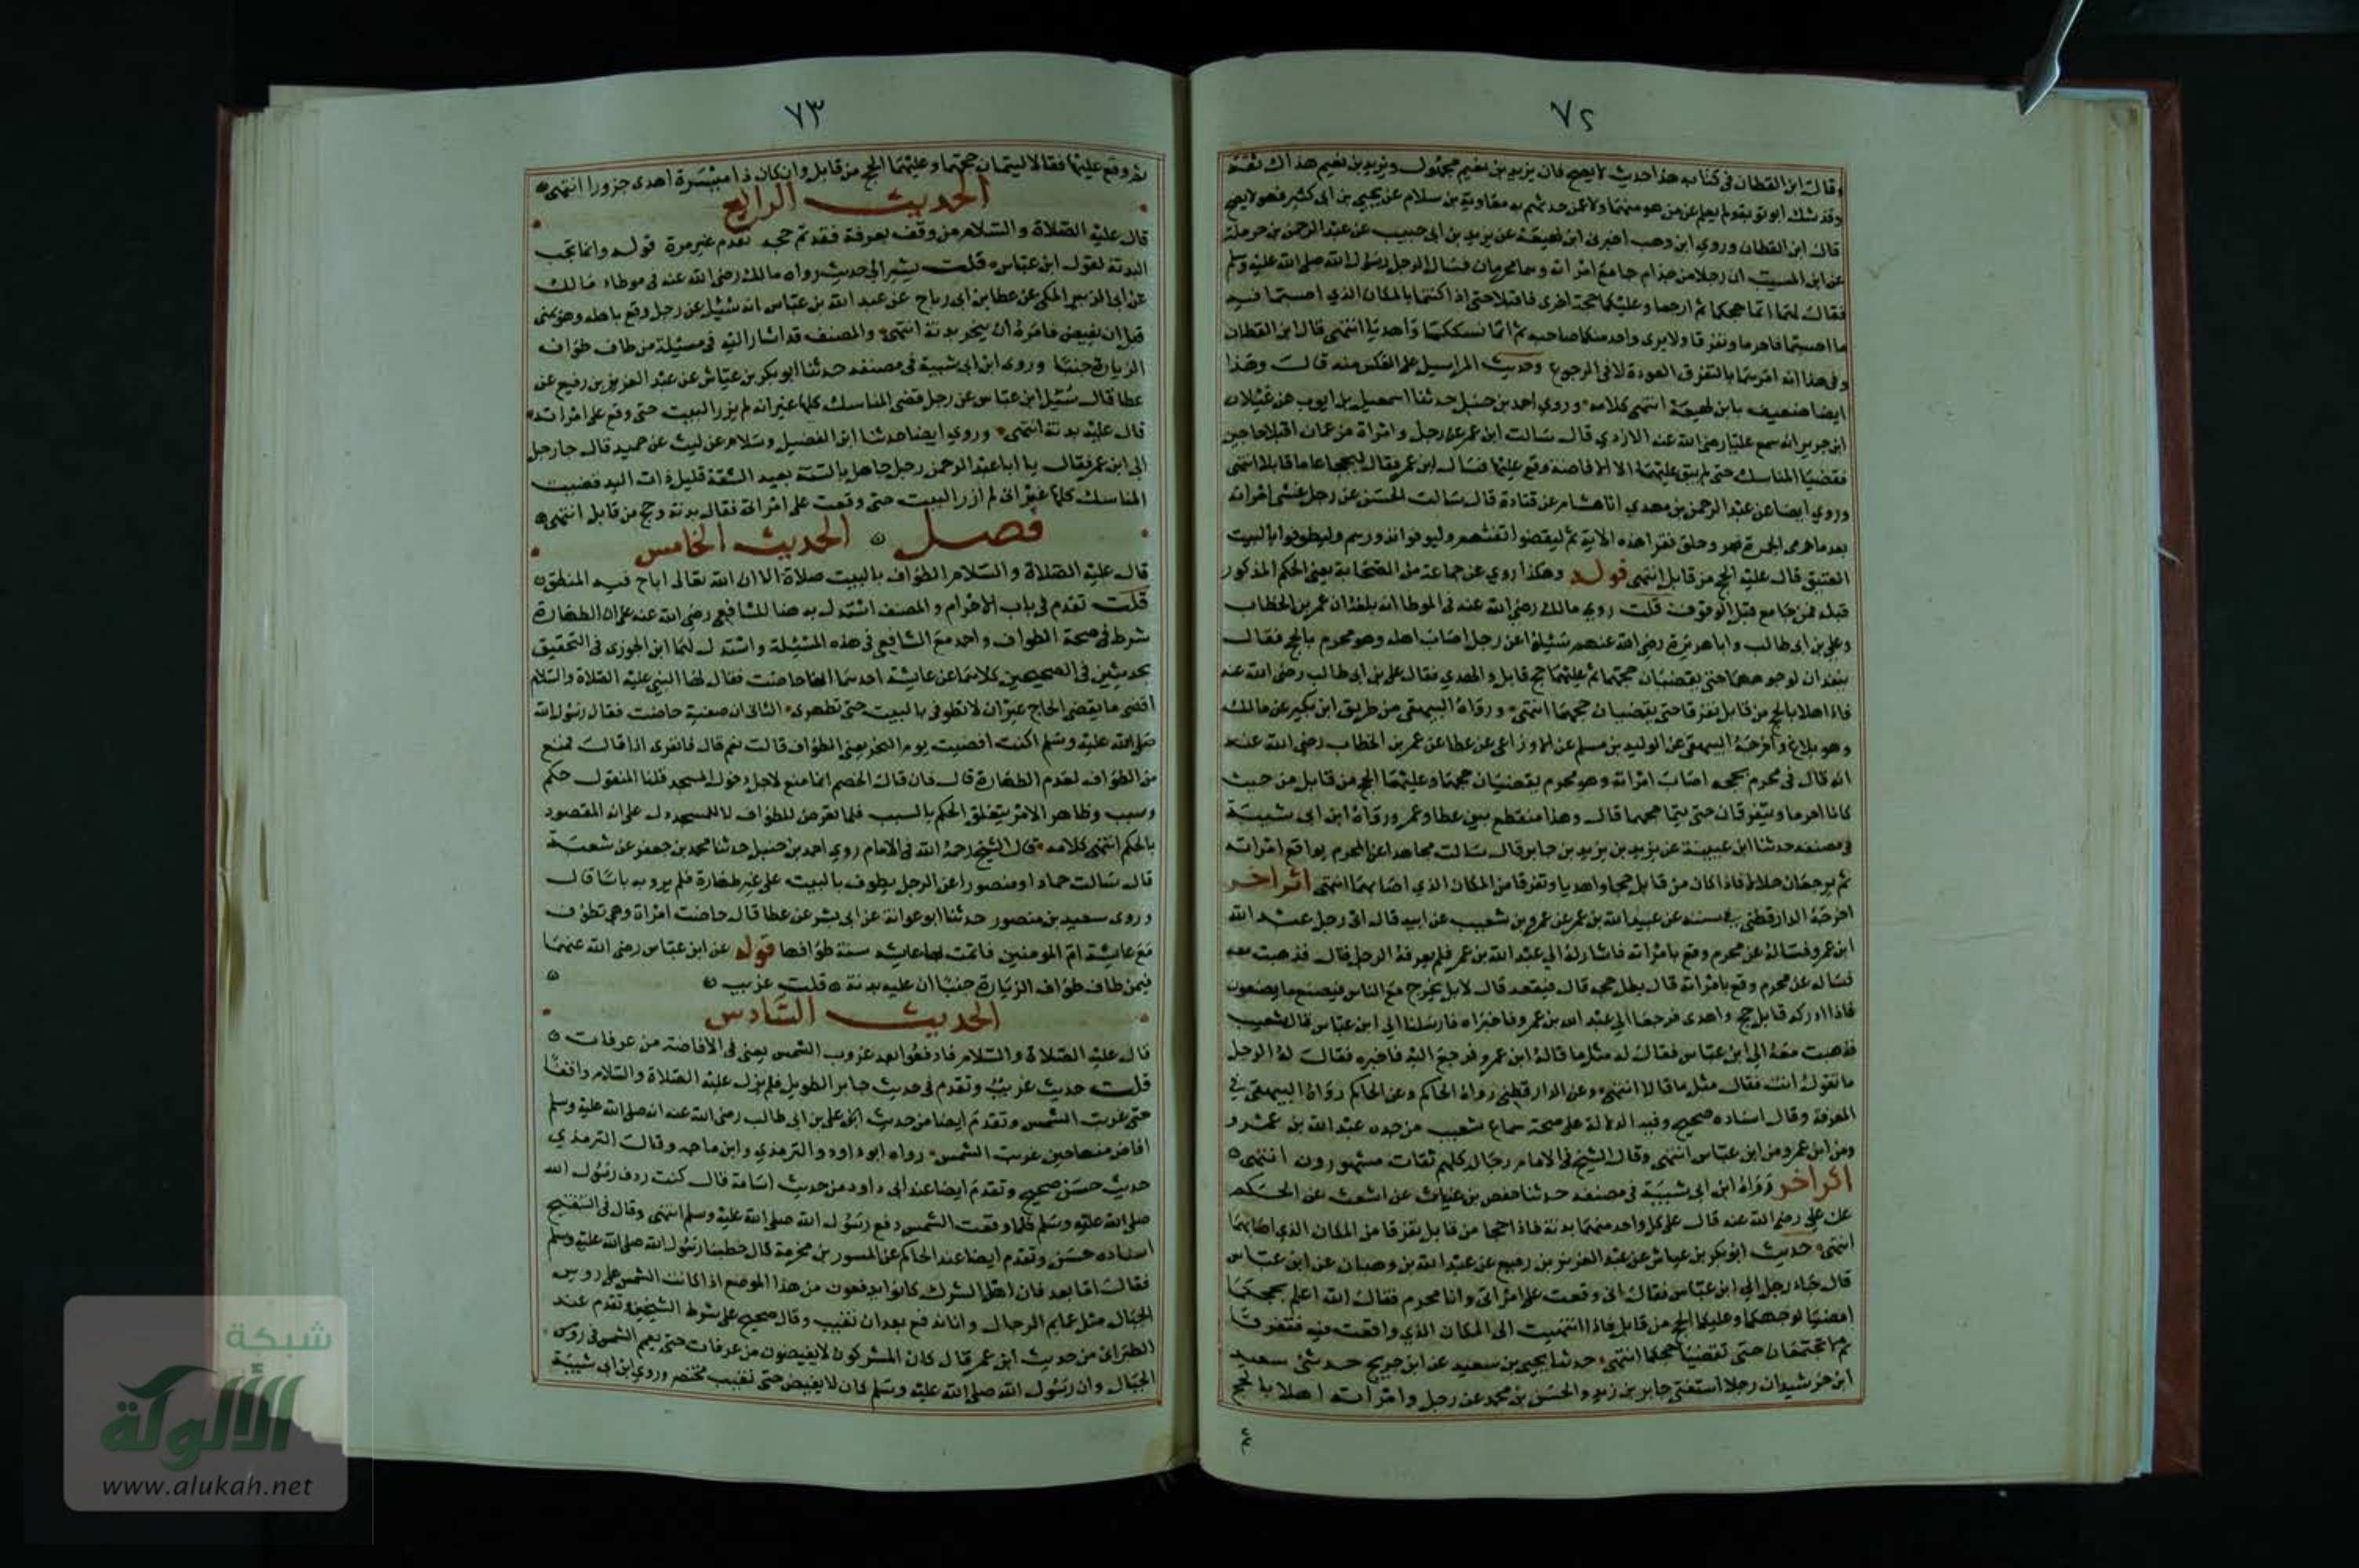 ٧٢
وقال ابن القطان في كتابه هذا حديث لا يصح فان يزيد بن نعيم مجهول ويزيد بن نعيم هذال ثقة
وقد شك ابو توبة ولم يعلم عن من هو منهما ولا عن حدثهم به معاوية بن سلام عن يحيى بن ابي كثير فهو لا يصح
قال ابن القطان وروي ابن وهب اخبرني ابن لهيعة عن يزيد بن ابي حبيب عن عبد الرحمن بن حرملة
عن ابن المسيب ان رجلا من جذام جامع امراته وهما محرمان فسال الرجل رسول الله صلى الله عليه وسلم
فقال لهما اتما حجكما ثم ارجعا وعليكما حجة اخرى فاقبلا حتى اذا كنتما بالمكان الذي اصبتما فيه
ما اصبتما فاحرما وتفرقا ولا يرى واحد منكما صاحبه ثم اتما نسككما واهديا انتهى قال ابن القطان
وفي هذا انه امرهما بالتفرق في العودة لا في الرجوع وحديث المراسيل على العكس منه قال وهذا
ايضا ضعيف بابن لهيعة انتهى كلامه وروي احمد بن حنبل حدثنا اسمعيل بن ايوب عن غيلان
ابن جرير انه سمع عليا رضي الله عنه الازدي قال سالت ابن عمر عن رجل وامراة من عمان اقبلا حاجين
فقضيا المناسك حتى لم يبق عليهما الا الافاضة وقع عليها فسال ابن عمر فقال ليحجا عاما قابلا انتهى
وروي ايضا عن عبد الرحمن بن مهدي انا هشام عن قتادة قال سالت الحسن عن رجل غشي امراته
بعد ما رمى الجمرة ونحر وحلق فقرا هذه الاية ثم ليقضوا تفثهم وليوفوا نذورهم وليطوفوا بالبيت
العتيق قال عليه الحج من قابل انتهى قوله وهكذا روي عن جماعة من الصحابة يعني الحكم المذكور
قبله فمن جامع قبل الوقوف قلت روي مالك رضي الله عنه في الموطا انه بلغه ان عمر بن الخطاب
وعلي بن ابي طالب وابا هريرة رضي الله عنهم سئلوا عن رجل اصاب اهله وهو محرم بالحج فقال
ينفذان لوجوههما حتى يقضيان حجهما ثم عليهما حج قابل والهدي فقال علي بن ابي طالب رضي الله عنه
فاذا اهلا بالحج من قابل تفرقا حتى يقضيان حجهما انتهى ورواه البيهقي من طريق ابن بكير عن مالك
وهو بلاغ واخرجه البيهقي عن الوليد بن مسلم عن الاوزاعي عن عطا عن عمر بن الخطاب رضي الله عنه
انه قال في محرم بحجة اصاب امراته وهو محرم يقضيان حجهما وعليهما الحج من قابل من حيث
كانا احرما ويتفرقان حتى يتما حجهما قال وهذا منقطع بين عطا وعمر ورواه ابن ابي شيبة
في مصنفه حدثنا ابن عيينة عن يزيد بن يزيد بن جابر قال سالت مجاهدا عن المحرم يواقع امراته
ثم يرجعان حلالا فاذا كان من قابل حجا واهديا وتفرقا من المكان الذي اصابهما انتهى اثر اخر
اخرجه الدارقطني في سننه عن عبيد الله بن عمر عن عمرو بن شعيب عن ابيه قال اتى رجل عبد الله
ابن عمرو فساله عن محرم وقع بامراته فاشار له الى عبد الله بن عمر فلم يعرفه الرجل قال فذهبت معه
فساله عن محرم وقع بامراته قال بطل حجه قال فيقعد قال لا بل يخرج مع الناس فيصنع ما يصنعون
فاذا ادركه قابل حج واهدى فرجعا الى عبد الله بن عمرو فاخبراه فارسلنا الى ابن عباس قال شعيب
فذهبت معه الى ابن عباس فقال له مثل ما قاله ابن عمر فرجع اليه فاخبره فقال له الرجل
ما تقول انت فقال مثل ما قالا انتهى وعن الدارقطني رواه الحاكم وعن الحاكم رواه البيهقي في
المعرفة وقال اسناده صحيح وفيه الدلالة على صحة سماع شعيب من جده عبد الله بن عمرو
ومن ابن عمر ومن ابن عباس انتهى وقال الشيخ في الامام رجاله كلهم ثقات مشهورون انتهى
اثر اخر رواه ابن ابي شيبة في مصنفه حدثنا حفص بن غياث عن اشعث عن الحكم
عن علي رضي الله عنه قال على كل واحد منهما بدنة فاذا حجا من قابل تفرقا من المكان الذي اصابهما
انتهى حديث ابو بكر بن عياش عن عبد العزيز بن رفيع عن عبد الله بن وهبان عن ابن عباس
قال جاء رجل الى ابن عباس فقال اني وقعت على امراتي وانا محرم فقال الله اعلم بحجكما
امضيا لوجهكما وعليكما الحج من قابل فاذا انتهيت الى المكان الذي واقعت فيه فتفرقا
ثم لا تجتمعان حتى تقضيا حجكما انتهى حدثنا يحيى بن سعيد عن ابن جريج حدثني سعيد
ابن خرشيد ان رجلا استفتى جابر بن زيد والحسن بن محمد عن رجل وامراته اهلا بالحج
ثم
٧٣
ثم وقع عليها فقالا ليتمان حجهما وعليهما الحج من قابل وان كان ذا ميسرة اهدى جزورا انتهى
الحديث الرابع
قال عليه الصلاة والسلام من وقف بعرفة فقد تم حجه تقدم غير مرة قوله وانما تجب
البدنة لقول ابن عباس قلت يشير الى حديث رواه مالك رضي الله عنه في موطاه مالك
عن ابي الزبير المكي عن عطا بن ابي رباح عن عبد الله بن عباس انه سئل عن رجل وقع باهله وهو بمنى
قبل ان يفيض فامره ان ينحر بدنة انتهى والمصنف قد اشار اليه في مسئلة من طاف طواف
الزيارة جنبا وروى ابن ابي شيبة في مصنفه حدثنا ابو بكر بن عياش عن عبد العزيز بن رفيع عن
عطا قال سئل ابن عباس عن رجل قضى المناسك كلها غير انه لم يزر البيت حتى وقع على امراته
قال عليه بدنة انتهى وروي ايضا حدثنا ابن الفضيل وسلام عن ليث عن حميد قال جا رجل
الى ابن عمر فقال يا ابا عبد الرحمن رجل جاهل بالسنة بعيد الشقة قليل ذات اليد قضيت
المناسك كلها غير اني لم ازر البيت حتى وقعت على امراتي فقال بدنة وحج من قابل انتهى
فصل الحديث الخامس
قال عليه الصلاة والسلام الطواف بالبيت صلاة الا ان الله تعالى اباح فيه المنطق
قلت تقدم في باب الاحرام والمصنف استدل به هنا للشافعي رضي الله عنه على ان الطهارة
شرط في صحة الطواف واحمد مع الشافعي في هذه المسئلة واستدل لهما ابن الجوزي في التحقيق
بحديثين في الصحيحين كلاهما عن عايشة احدهما انها حاضت فقال لها النبي عليه الصلاة والسلام
اقضي ما يقضي الحاج غير ان لا تطوفي بالبيت حتى تطهري الثاني ان صفية حاضت فقال رسول الله
صلى الله عليه وسلم اكنت افضيت يوم النحر يعني الطواف قالت نعم قال فانفري اذا قالت فمنع
من الطواف لعدم الطهارة قال فان قال الخصم انما منع لاجل دخول المسجد قلنا المنقول حكم
وسبب وظاهر الامر يتعلق الحكم بالسبب فلما تعرض للطواف لا للمسجد دل على انه المقصود
بالحكم انتهى كلامه قال الشيخ رحمه الله في الامام روي احمد بن حنبل حدثنا محمد بن جعفر عن شعبة
قال سالت حمادا ومنصورا عن الرجل يطوف بالبيت على غير طهارة فلم يرو به باسا قال
وروى سعيد بن منصور حدثنا ابو عوانة عن ابي بشر عن عطا قال حاضت امراة وهي تطوف
مع عايشة ام المومنين فاتمت بها عايشة سنة طوافها قوله عن ابن عباس رضي الله عنهما
فيمن طاف طواف الزيارة جنبا ان عليه بدنة قلت غريب
الحديث السادس
قال عليه الصلاة والسلام فادفعوا بعد غروب الشمس يعني في الافاضة من عرفات
قلت حديث غريب وتقدم في حديث جابر الطويل فلم يزل عليه الصلاة والسلام واقفا
حتى غربت الشمس وتقدم ايضا من حديث علي بن ابي طالب رضي الله عنه انه صلى الله عليه وسلم
افاض منها حين غربت الشمس رواه ابو داود والترمذي وابن ماجه وقال الترمذي
حديث حسن صحيح وتقدم ايضا عند ابي داود من حديث اسامة قال كنت ردف رسول الله
صلى الله عليه وسلم فلما وقعت الشمس دفع رسول الله صلى الله عليه وسلم انتهى وقال في التنقيح
اسناده حسن وتقدم ايضا عند الحاكم عن المسور بن مخرمة قال خطبنا رسول الله صلى الله عليه وسلم
فقال اما بعد فان اهل الشرك كانوا يدفعون من هذا الموضع اذا كانت الشمس على روس
الجبال مثل عمايم الرجال وانا ندفع بعد ان تغيب وقال صحيح على شرط الشيخين وتقدم عند
الطبراني من حديث ابن عمر قال كان المشركون لا يفيضون من عرفات حتى تعمم الشمس في روس
الجبال وان رسول الله صلى الله عليه وسلم كان لا يفيض حتى تغيب مختصر وروي ابن ابي شيبة
شبكة
الألوكة
www.alukah.net